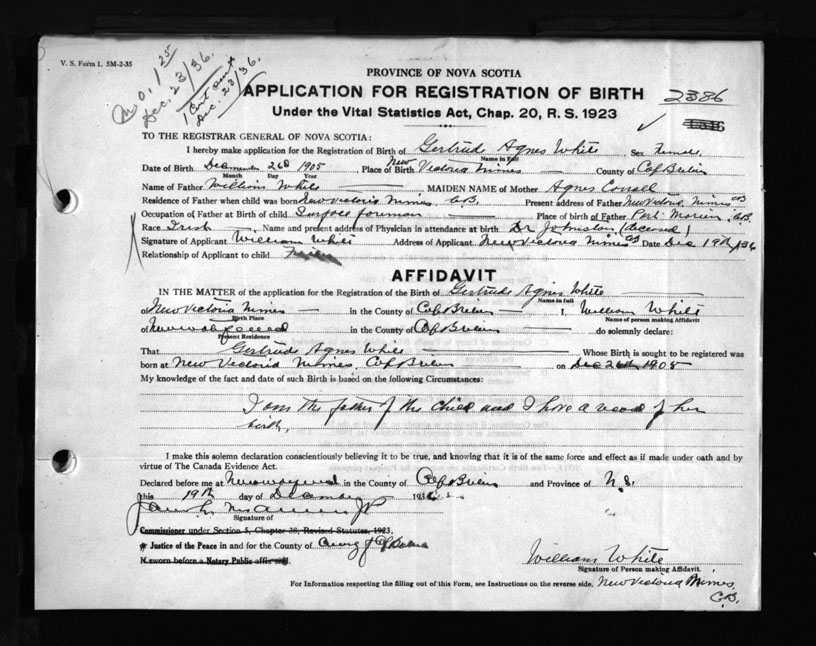 V. S. Form 1. 5M-2-35
M.O. 1 25
Dec. 23/36.
1 Cert sent
Dec. 23/36.
PROVINCE OF NOVA SCOTIA
APPLICATION FOR REGISTRATION OF BIRTH
2386
Under the Vital Statistics Act, Chap. 20, R. S. 1923
TO THE REGISTRAR GENERAL OF NOVA SCOTIA:
I hereby make application for the Registration of Birth of Gertrude Agnes White Sex Female
Name in Full
Date of Birth December 26 1905 Place of Birth New Victoria Mines County of Cape Breton
Month Day Year
Name of Father William White MAIDEN NAME of Mother Agnes
Residence of Father when child was born New Victoria Mines C.B. Present address of Father New Victoria Mines CB
Occupation of Father at Birth of child Surface foreman Place of birth of Father Port Morien C.B.
Race Irish Name and present address of Physician in attendance at birth Dr Johnston (deceased)
Signature of Applicant William White Address of Applicant New Victoria Mines CB Date Dec 19th /36
Relationship of Applicant to child Father
AFFIDAVIT
IN THE MATTER of the application for the Registration of the Birth of Gertrude Agnes White
Name in full
of New Victoria Mines in the County of Cape Breton I, William White
Birth Place Name of person making Affidavit
of in the County of Cape Breton do solemnly declare:
Present Residence
That Gertrude Agnes White Whose Birth is sought to be registered was
born at New Victoria Mines, Cape Breton on Dec 26th 1905
My knowledge of the fact and date of such Birth is based on the following Circumstances:
I am the father of this child and I have a record of her
birth.
I make this solemn declaration conscientiously believing it to be true, and knowing that it is of the same force and effect as if made under oath and by
virtue of The Canada Evidence Act.
Declared before me at in the County of Cape Breton and Province of N.S.
this 19th day of December 1936
JP
Signature of
Commissioner under Section 5, Chapter 38, Revised Statutes, 1923.
* Justice of the Peace in and for the County of Cape Breton
If sworn before a Notary Public affix seal.
William White
Signature of Person making Affidavit.
For Information respecting the filling out of this Form, see Instructions on the reverse side.
New Victoria Mines,
C.B.